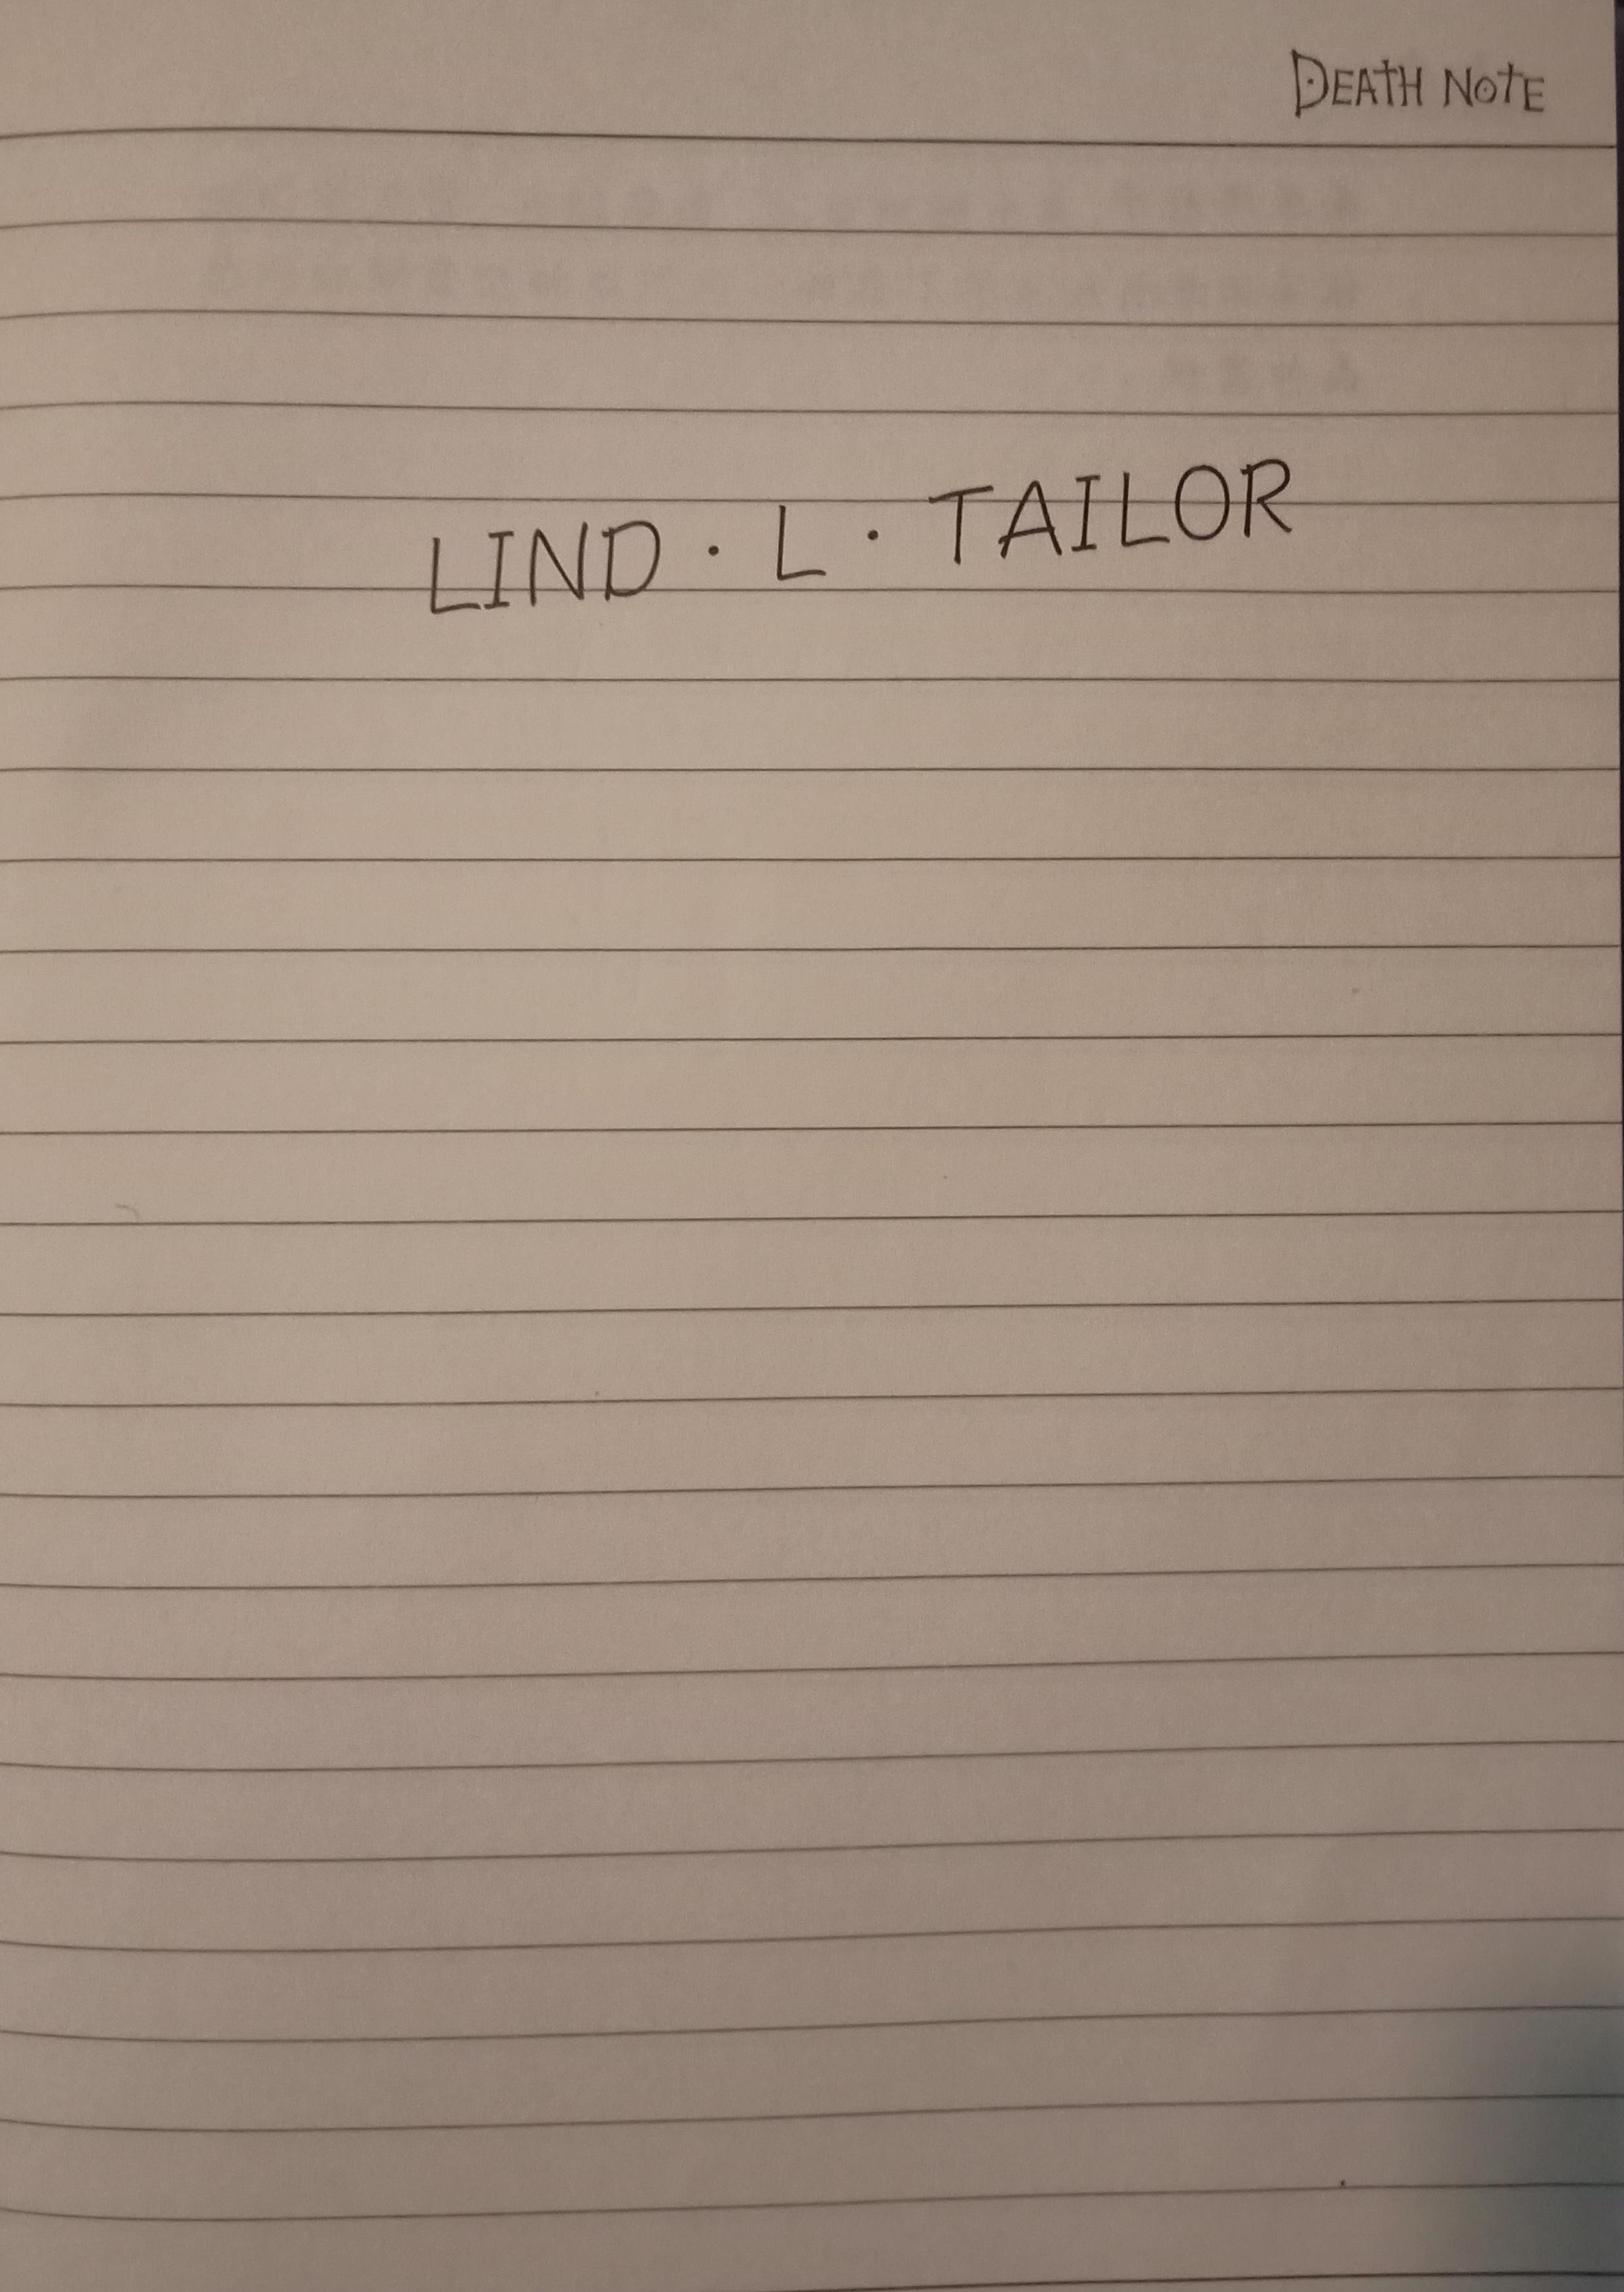 DEATH NOTE
LIND · L · TAILOR